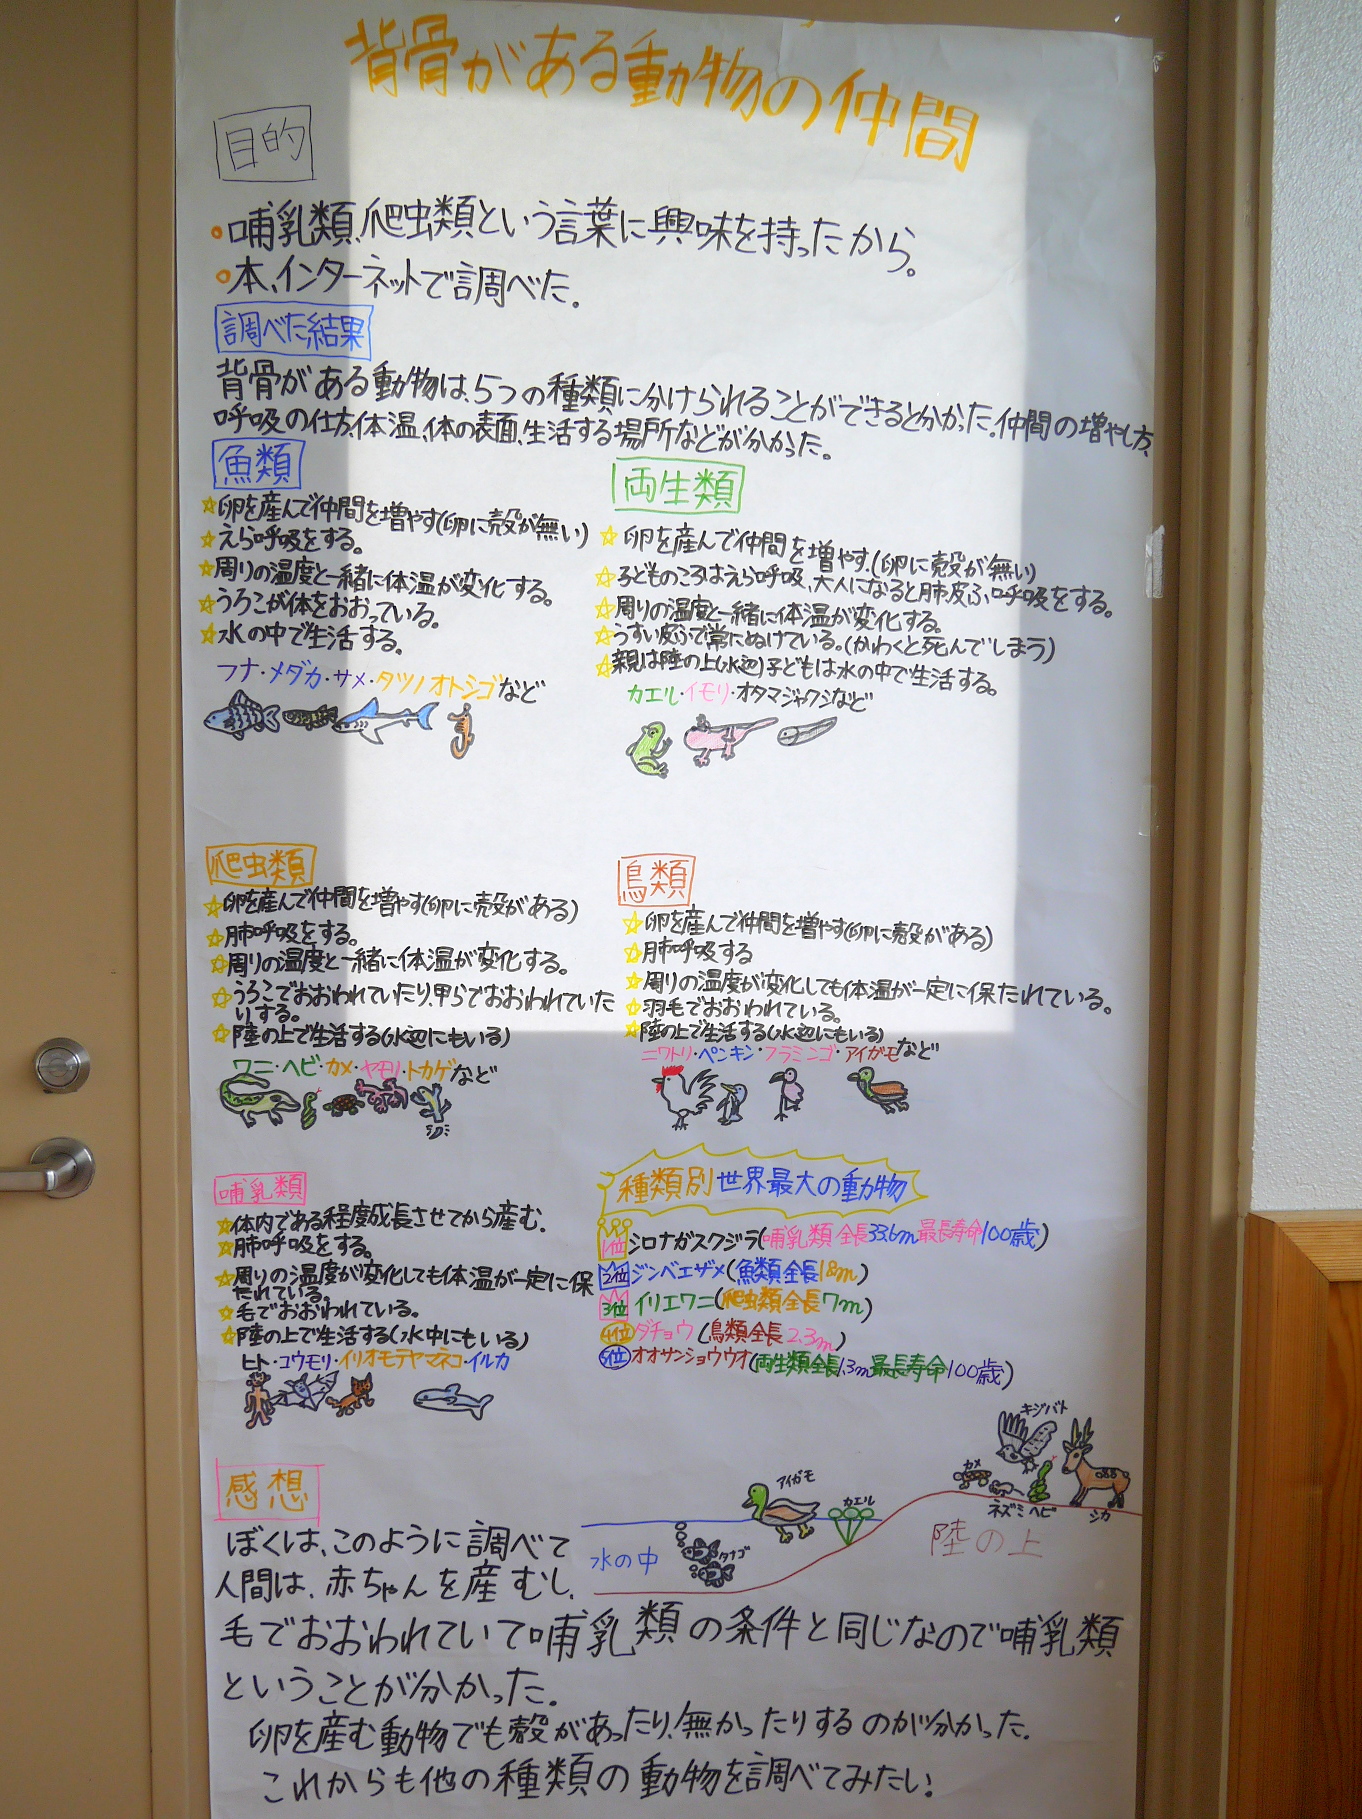 背骨がある動物の仲間
目的
・哺乳類、爬虫類という言葉に興味を持ったから。
・本、インターネットで調べた。
調べた結果
背骨がある動物は、5つの種類に分けられることができるとわかった。仲間の増やし方、
呼吸の仕方、体温、体の表面、生活する場所などが分かった。
魚類
☆卵を産んで仲間を増やす(卵に殻が無い)
☆えら呼吸をする。
☆周りの温度と一緒に体温が変化する。
☆うろこが体をおおっている。
☆水の中で生活する。
フナ・メダカ・サメ・タツノオトシゴなど
両生類
☆卵を産んで仲間を増やす。(卵に殻が無い)
☆子どものころはえら呼吸、大人になると肺、皮ふ呼吸をする。
☆周りの温度と一緒に体温が変化する。
☆うすい皮ふで常にぬけている。(かわくと死んでしまう)
☆親は陸の上(水辺)子どもは水の中で生活する。
カエル・イモリ・オタマジャクシなど
爬虫類
☆卵を産んで仲間を増やす(卵に殻がある)
☆肺呼吸をする。
☆周りの温度と一緒に体温が変化する。
☆うろこでおおわれていたり、甲らでおおわれていた
りする。
☆陸の上で生活する(水辺にもいる)
ワニ・ヘビ・カメ・ヤモリ・トカゲなど
鳥類
☆卵を産んで仲間を増やす(卵に殻がある)
☆肺呼吸する
☆周りの温度が変化しても体温が一定に保たれている。
☆羽毛でおおわれている。
☆陸の上で生活する(水辺にもいる)
ニワトリ・ペンギン・フラミンゴ・アイガモなど
哺乳類
☆体内である程度成長させてから産む。
☆肺呼吸をする。
☆周りの温度が変化しても体温が一定に保
たれている。
☆毛でおおわれている。
☆陸の上で生活する(水中にもいる)
ヒト・コウモリ・イリオモテヤマネコ・イルカ
種類別世界最大の動物
1位シロナガスクジラ(哺乳類 全長33.6m最長寿命100歳)
2位ジンベエザメ(魚類全長18m)
3位イリエワニ(爬虫類全長7m)
4位ダチョウ(鳥類全長2.3m)
5位オオサンショウウオ(両生類全長1.3m最長寿命100歳)
キジバト
カメ
ネズミ
ヘビ
シカ
アイガモ
カエル
タナゴ
水の中
陸の上
感想
ぼくは、このように調べて
人間は、赤ちゃんを産むし、
毛でおおわれていて哺乳類の条件と同じなので哺乳類
ということが分かった。
卵を産む動物でも殻があったり、無かったりするのが分かった。
これからも他の種類の動物を調べてみたい。